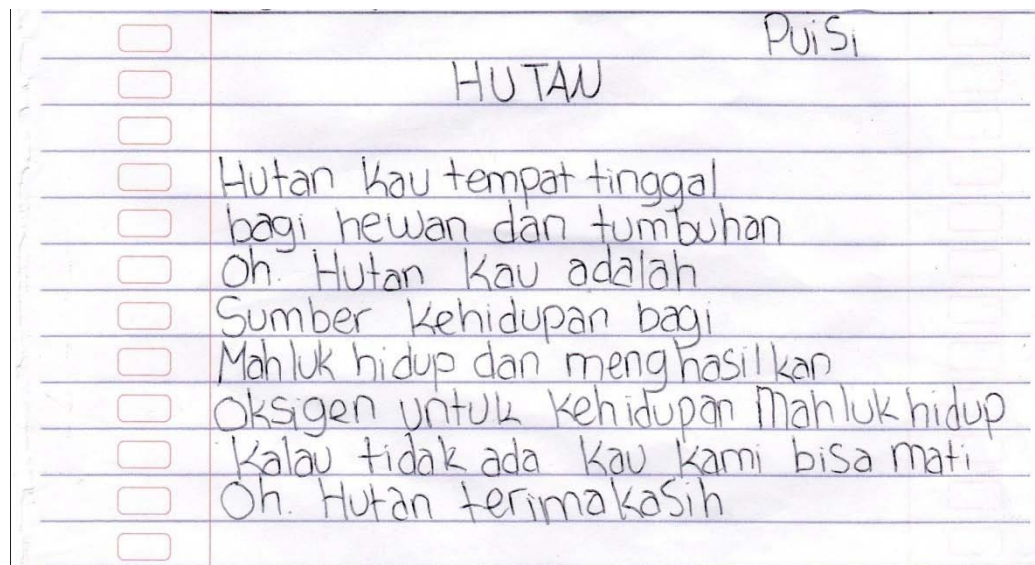 Puisi
HUTAN
Hutan kau tempat tinggal
bagi hewan dan tumbuhan
Oh. Hutan kau adalah
Sumber kehidupan bagi
Mahluk hidup dan menghasilkan
Oksigen untuk kehidupan Mahluk hidup
Kalau tidak ada kau kami bisa mati
Oh. Hutan terimakasih